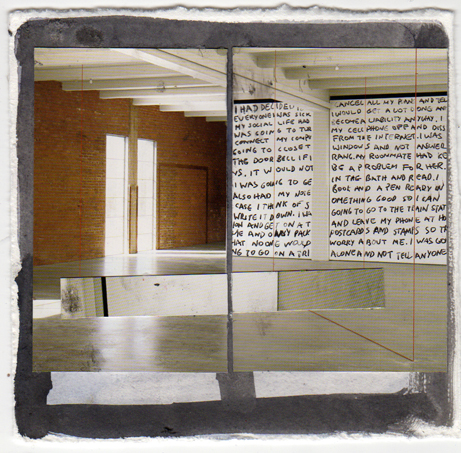 I HAD DECIDED CANCEL ALL MY AND
EVERYONE I WAS SICK I WOULD GET A LOT AND
MY SOCIAL LIFE HAD BECOME A LIABILITY ANYWAY, I
WAS GOING TO TUR MY CELL PHONE OFF AND DIS
CONNECT MY COMPU FROM THE INTERNET. I WAS
GOING TO CLOSE T WINDOWS AND NOT ANSWER
THE DOOR BELL IF I RANG. MY ROOMMATE HAD KE
YS, IT WOULD NOT BE A PROBLEM FOR HER.
I WAS GOING TO GE IN THE BATH AND READ. I
ALSO HAD MY NOTE BOOK AND A PEN READY IN
CASE I THINK OF S OMETHING GOOD SO I CAN
WRITE IT DOWN. I WA GOING TO GO TO THE TRAIN STAT
ION AND GET ON AT AND LEAVE MY PHONE AT HO
ME AND ONLY PACK POSTCARDS AND STAMPS SO TH
AT NO ONE WOULD WORRY ABOUT ME. I WAS GOI
NG TO GO ON A TRI ALONE AND NOT TELL ANYONE